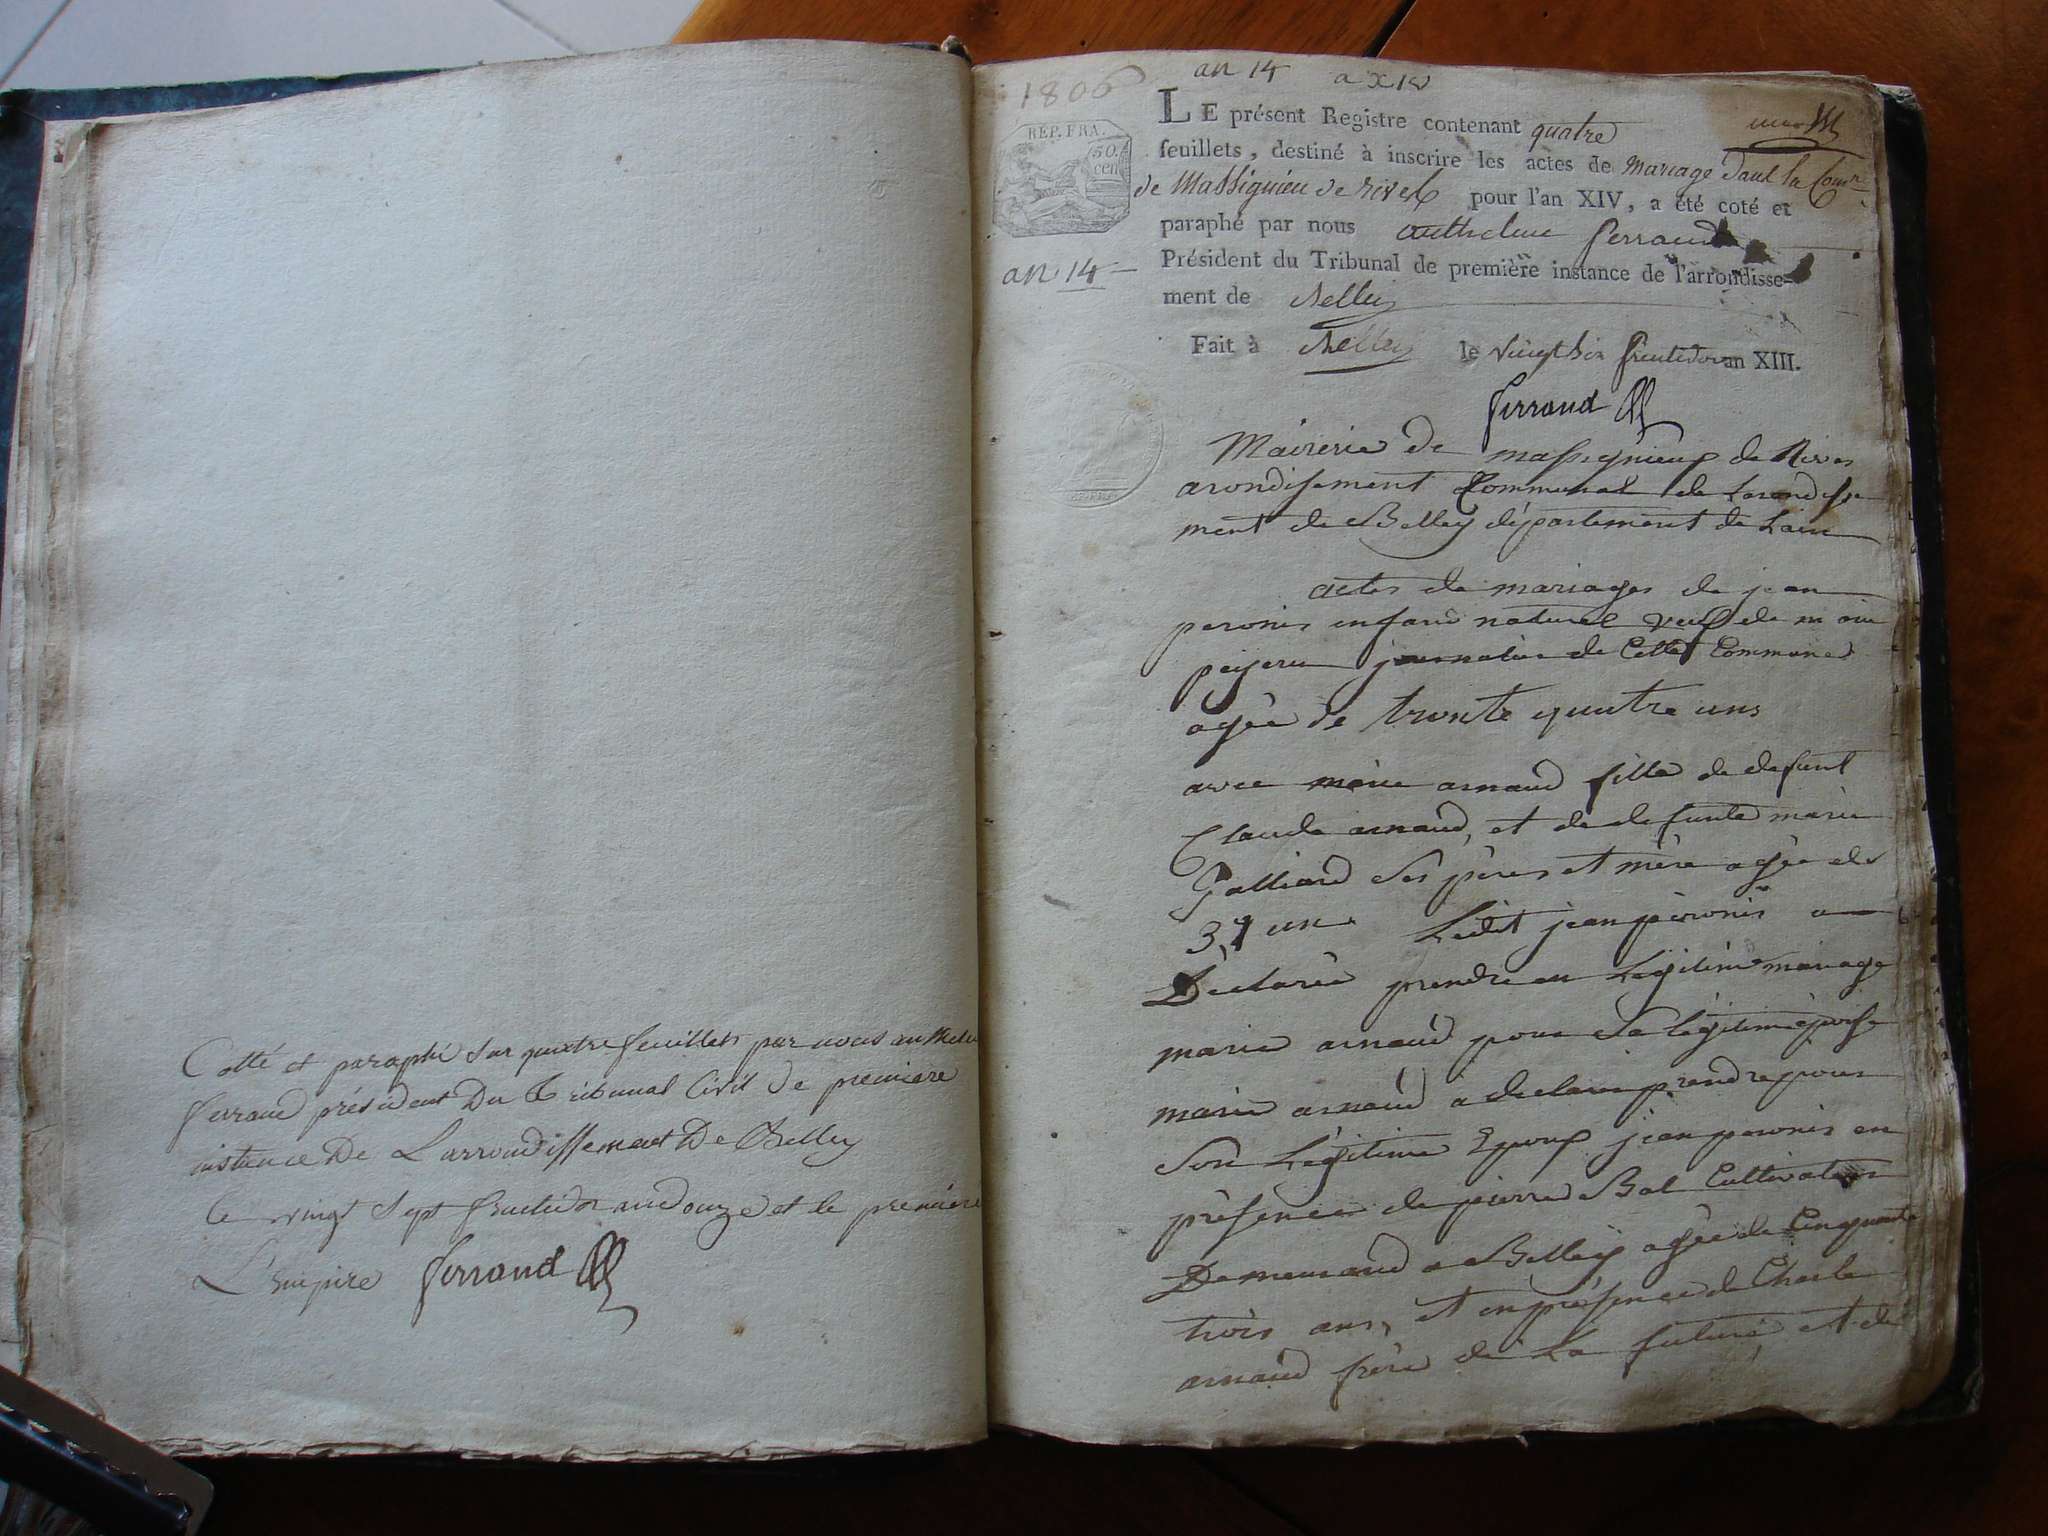 Cotté et paraphé sur quatre feuillets par nous anthelme
ferrand président Du Tribunal Civil de premiere
instance De L'arrondissement De Belley
le vingt sept fructidor an douze et le premiere
L'Empire ferrand
1806
an 14 a XIV
REP. FRA.
50.
cen
an 14
LE présent Registre contenant quatre
feuillets, destiné à inscrire les actes de Mariage dans la Comne
de Massignieu de rives pour l'an XIV, a été coté et
paraphé par nous anthelme ferrand
Président du Tribunal de première instance de l'arrondisse-
ment de Belley
Fait à Belley le vingt six fructidor an XIII.
ferrand
Mairerie de massignieux de Rives
arondisement Communal de Larondisse
ment de Belley département de Lain
actes de mariages de jean
peronis enfant naturel veuf de marie
journalier de Cette Commune
agée de trente quatre ans
avec marie arnaud fille de defunt
Claude arnaud, et de defunte marie
Galliard ses pères et mère agée de
ans Ledit jean peronis a
Déclaree prendre en Legitime mariage
marie arnaud pour sa légitime épouse
marie arnaud a declaree prendre pour
Son Légitime Epoux jean peronis en
présence de pierre Bal Cultivateur
Demeurand a Belley agée de Cinquante
trois ans, et en présence de Charle
arnaud frère de La future et de